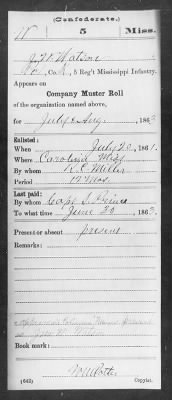 (Confederate.)
W 5 Miss.
J. W. Watson
Co. K, 5 Reg't Mississippi Infantry.
Appears on
Company Muster Roll
of the organization named above,
for July & Aug, 1863
Enlisted:
When July 20, 1861.
Where Carrollton Miss
By whom K. C. Miller
Period 12 Mos.
Last paid:
By whom Capt S.
To what time June 30, 1863.
Present or absent present
Remarks:
Book mark:
(642) Copyist.